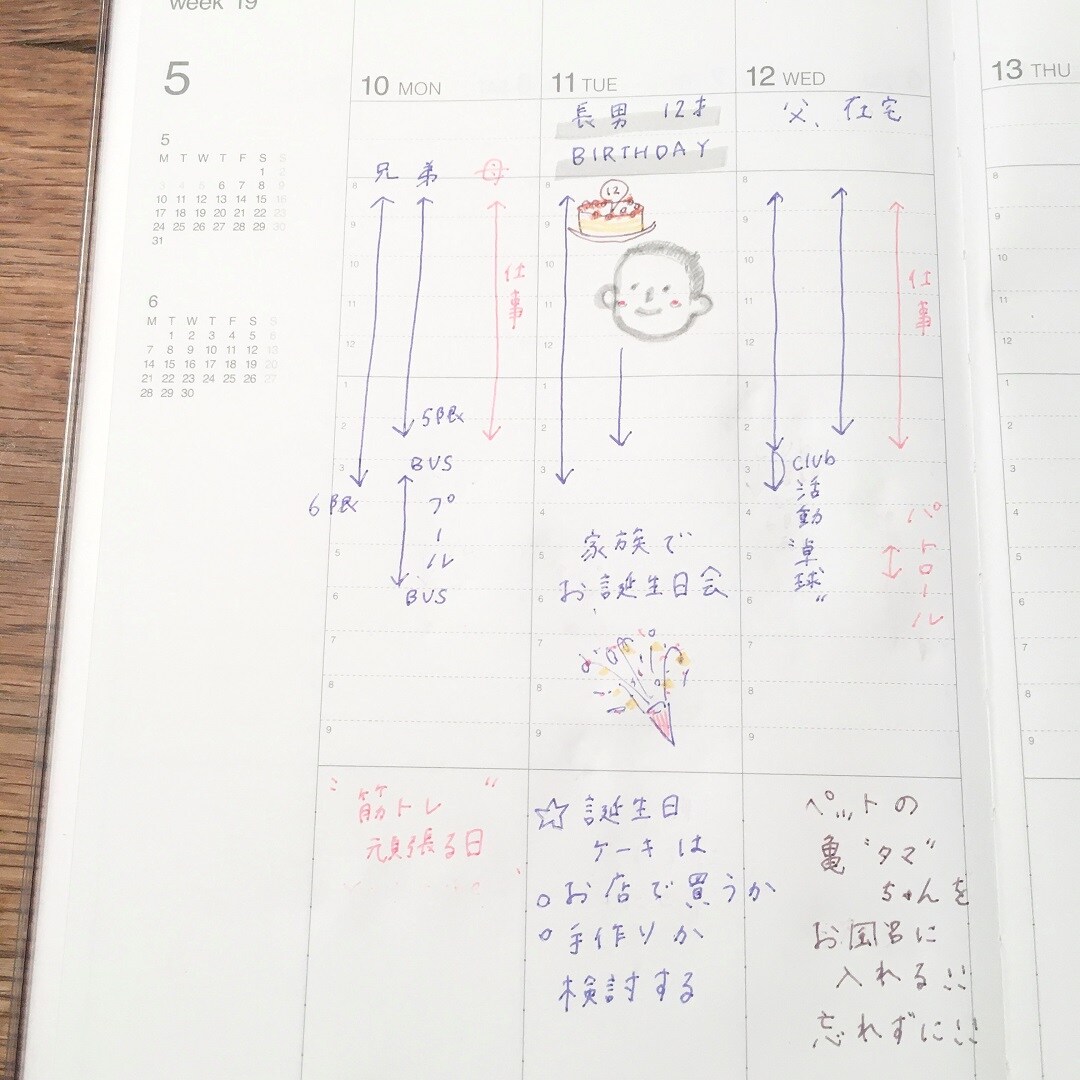 week 19
5
10 MON
11 TUE
12 WED
13 THU
5
M T W T F S S
1 2
3 4 5 6 7 8 9
10 11 12 13 14 15 16
17 18 19 20 21 22 23
24 25 26 27 28 29 30
31
6
M T W T F S S
1 2 3 4 5 6
7 8 9 10 11 12 13
14 15 16 17 18 19 20
21 22 23 24 25 26 27
28 29 30
兄 弟 母
8
9
10
11
12
1
2
3
4
5
6
7
8
9
仕事
5限
6限
BUS
プール
BUS
"筋トレ"
頑張る日
長男 12才
BIRTHDAY
8
9
10
11
12
1
2
3
4
5
6
7
8
9
12
家族で
お誕生日会
☆誕生日
ケーキは
○お店で買うか
○手作りか
検討する
父、在宅
8
9
10
11
12
1
2
3
4
5
6
7
8
9
仕事
Club
活動
"卓球"
パトロール
ペットの
亀"タマ"
ちゃんを
お風呂に
入れる!!
忘れずに!!
8
9
10
11
12
1
2
3
4
5
6
7
8
9